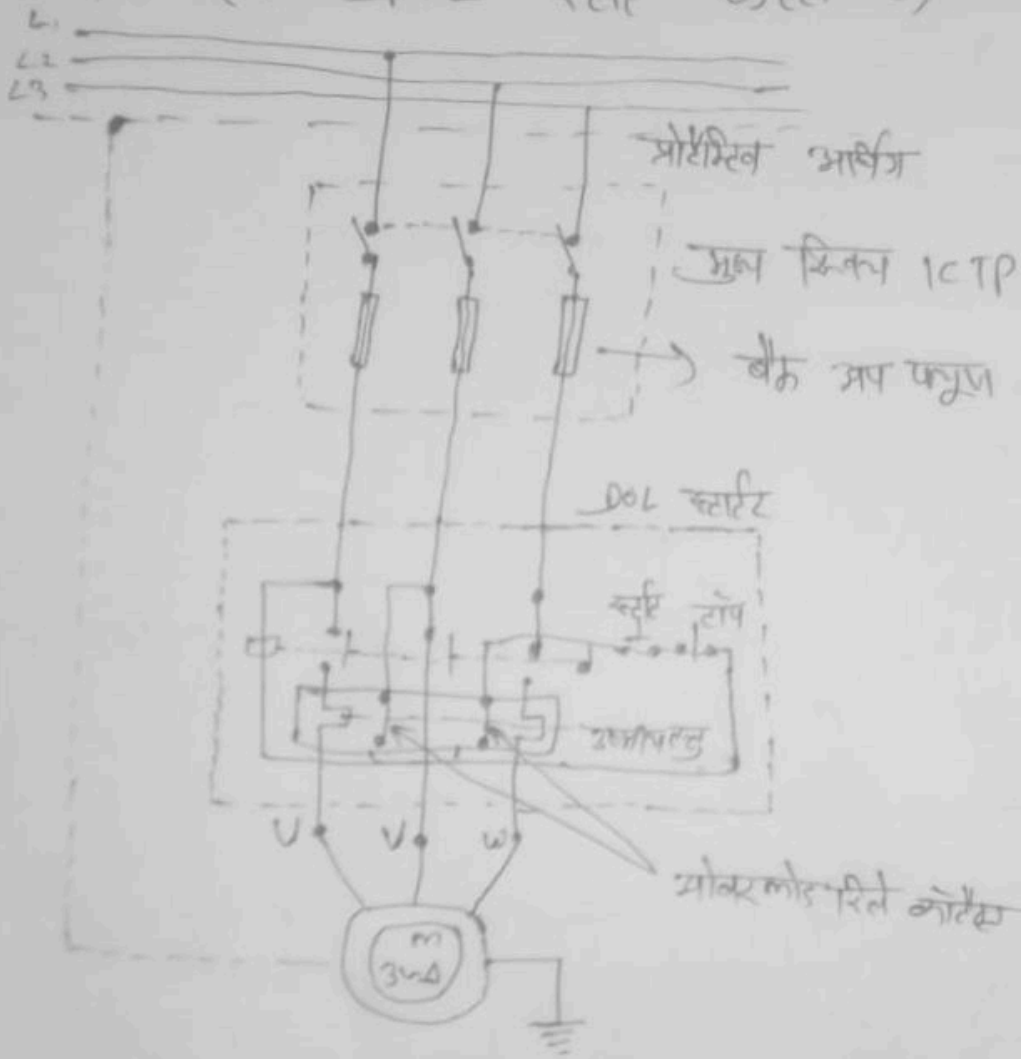 L1
L2
L3
प्रोटैक्टिव अर्थिंग
मुख्य स्विच ICTP
बैक अप फ्यूज
DOL स्टार्टर
स्टार्ट टॉप
U V W
ओवरलोड रिले
M